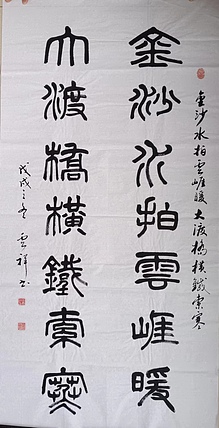 金沙水拍雲崖暖
大渡橋橫鐵索寒
金沙水拍雲崖暖大渡橋橫鐵索寒
戊戌之冬雲祥書